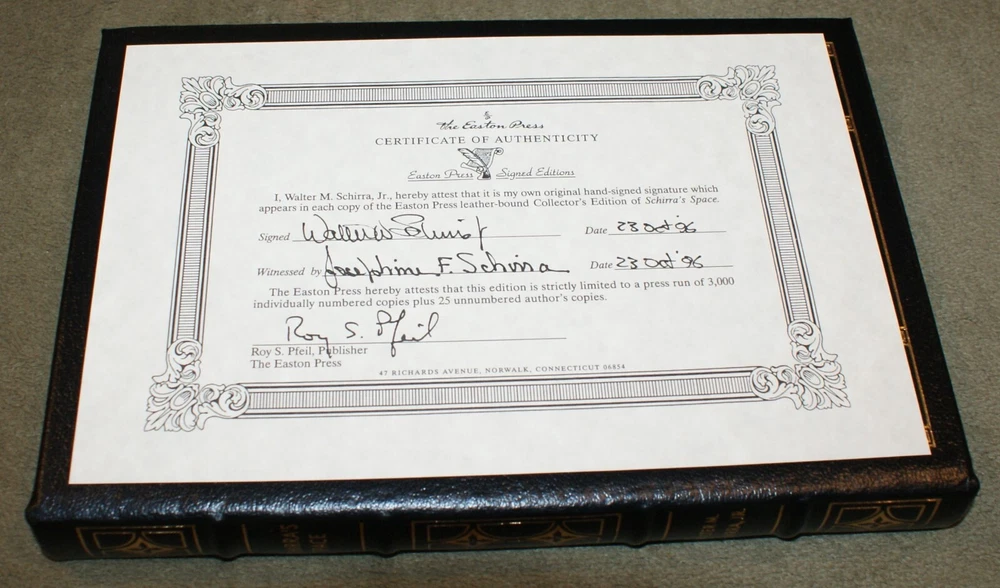 The Easton Press
CERTIFICATE OF AUTHENTICITY
Easton Press Signed Editions
I, Walter M. Schirra, Jr., hereby attest that it is my own original hand-signed signature which
appears in each copy of the Easton Press leather-bound Collector's Edition of Schirra's Space.
Signed Date 23 Oct '96
Witnessed by Josephine F. Schirra Date 23 Oct '96
The Easton Press hereby attests that this edition is strictly limited to a press run of 3,000
individually numbered copies plus 25 unnumbered author's copies.
Roy S. Pfeil
Roy S. Pfeil, Publisher
The Easton Press
47 RICHARDS AVENUE, NORWALK, CONNECTICUT 06854